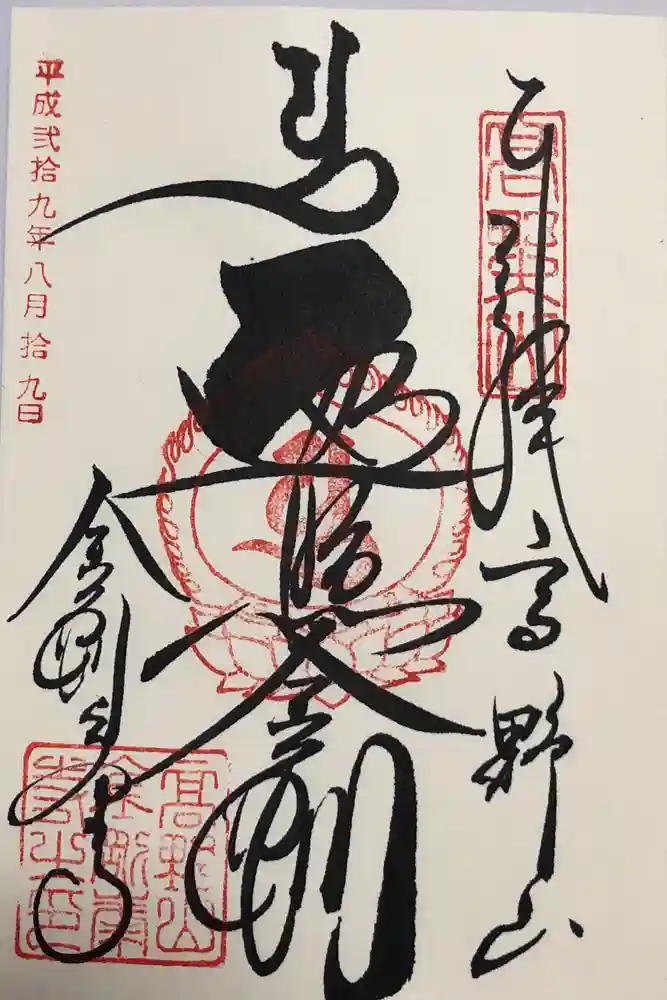 奉拝 高野山
遍照金剛
金剛峯寺
平成弐拾九年八月拾九日
高野山
高野山
金剛峯
寺之印